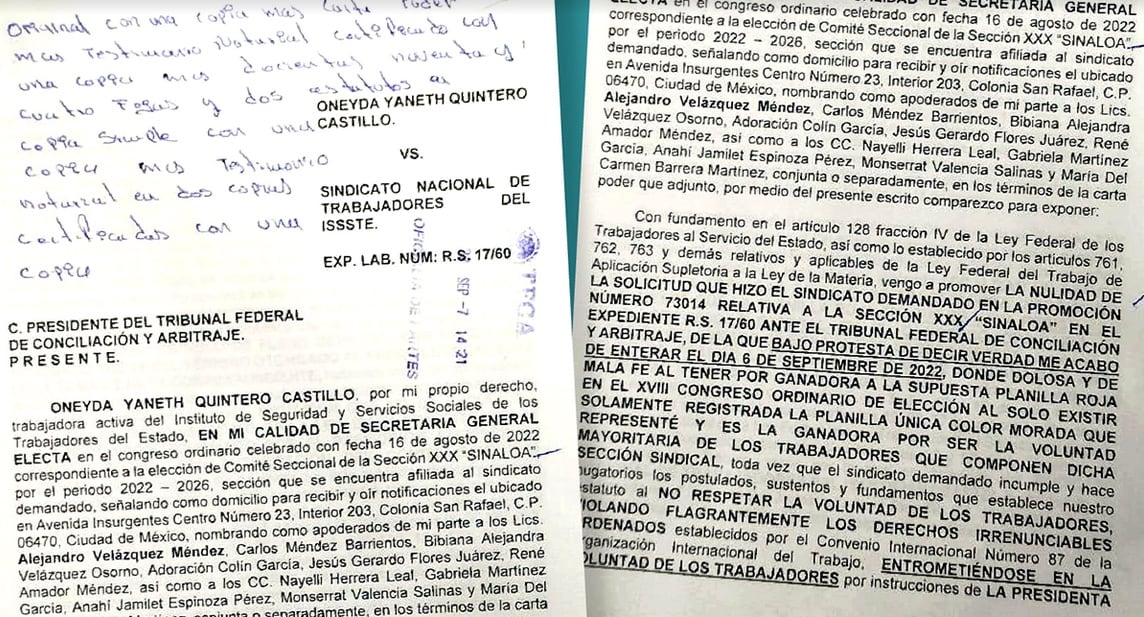 Original con una copia mas Carta Poder
mas Testimonio Notarial Certificado con
una copia mas docientas noventa y
cuatro Fojas y dos estatutos en
copia simple con una
copia mas Testimonio
notarial en dos copias
certificadas con una
copia
ONEYDA YANETH QUINTERO
CASTILLO.
VS.
SINDICATO NACIONAL DE
TRABAJADORES DEL
ISSSTE.
EXP. LAB. NUM: R.S. 17/60
TFCA
SEP -7 14 21
C. PRESIDENTE DEL TRIBUNAL FEDERAL
DE CONCILIACIÓN Y ARBITRAJE.
P R E S E N T E.
ONEYDA YANETH QUINTERO CASTILLO, por mi propio derecho,
trabajadora activa del Instituto de Seguridad y Servicios Sociales de los
Trabajadores del Estado, EN MI CALIDAD DE SECRETARIA GENERAL
ELECTA en el congreso ordinario celebrado con fecha 16 de agosto de 2022
correspondiente a la elección de Comité Seccional de la Sección XXX "SINALOA"
por el periodo 2022 – 2026, sección que se encuentra afiliada al sindicato
demandado, señalando como domicilio para recibir y oír notificaciones el ubicado
en Avenida Insurgentes Centro Número 23, Interior 203, Colonia San Rafael, C.P.
06470, Ciudad de México, nombrando como apoderados de mi parte a los Lics.
Alejandro Velázquez Méndez, Carlos Méndez Barrientos, Bibiana Alejandra
Velázquez Osorno, Adoración Colín García, Jesús Gerardo Flores Juárez, René
Amador Méndez, así como a los CC. Nayelli Herrera Leal, Gabriela Martínez
García, Anahí Jamilet Espinoza Pérez, Monserrat Valencia Salinas y María Del
conjunta o separadamente, en los términos de la carta
SECRETARIA GENERAL
ELECTA en el congreso ordinario celebrado con fecha 16 de agosto de 2022
correspondiente a la elección de Comité Seccional de la Sección XXX "SINALOA"
por el periodo 2022 – 2026, sección que se encuentra afiliada al sindicato
demandado, señalando como domicilio para recibir y oír notificaciones el ubicado
en Avenida Insurgentes Centro Número 23, Interior 203, Colonia San Rafael, C.P.
06470, Ciudad de México, nombrando como apoderados de mi parte a los Lics.
Alejandro Velázquez Méndez, Carlos Méndez Barrientos, Bibiana Alejandra
Velázquez Osorno, Adoración Colín García, Jesús Gerardo Flores Juárez, René
Amador Méndez, así como a los CC. Nayelli Herrera Leal, Gabriela Martínez
García, Anahí Jamilet Espinoza Pérez, Monserrat Valencia Salinas y María Del
Carmen Barrera Martínez, conjunta o separadamente, en los términos de la carta
poder que adjunto, por medio del presente escrito comparezco para exponer:
Con fundamento en el artículo 128 fracción IV de la Ley Federal de los
Trabajadores al Servicio del Estado, así como lo establecido por los artículos 761,
762, 763 y demás relativos y aplicables de la Ley Federal del Trabajo de
Aplicación Supletoria a la Ley de la Materia, vengo a promover LA NULIDAD DE
LA SOLICITUD QUE HIZO EL SINDICATO DEMANDADO EN LA PROMOCIÓN
NÚMERO 73014 RELATIVA A LA SECCIÓN XXX "SINALOA" EN EL
EXPEDIENTE R.S. 17/60 ANTE EL TRIBUNAL FEDERAL DE CONCILIACIÓN
Y ARBITRAJE, DE LA QUE BAJO PROTESTA DE DECIR VERDAD ME ACABO
DE ENTERAR EL DIA 6 DE SEPTIEMBRE DE 2022, DONDE DOLOSA Y DE
MALA FE AL TENER POR GANADORA A LA SUPUESTA PLANILLA ROJA
EN EL XVIII CONGRESO ORDINARIO DE ELECCIÓN AL SOLO EXISTIR
SOLAMENTE REGISTRADA LA PLANILLA ÚNICA COLOR MORADA QUE
REPRESENTÉ Y ES LA GANADORA POR SER LA VOLUNTAD
MAYORITARIA DE LOS TRABAJADORES QUE COMPONEN DICHA
SECCIÓN SINDICAL, toda vez que el sindicato demandado incumple y hace
nugatorios los postulados, sustentos y fundamentos que establece nuestro
estatuto al NO RESPETAR LA VOLUNTAD DE LOS TRABAJADORES,
VIOLANDO FLAGRANTEMENTE LOS DERECHOS IRRENUNCIABLES
ORDENADOS establecidos por el Convenio Internacional Número 87 de la
Organización Internacional del Trabajo, ENTROMETIÉNDOSE EN LA
VOLUNTAD DE LOS TRABAJADORES por instrucciones de LA PRESIDENTA